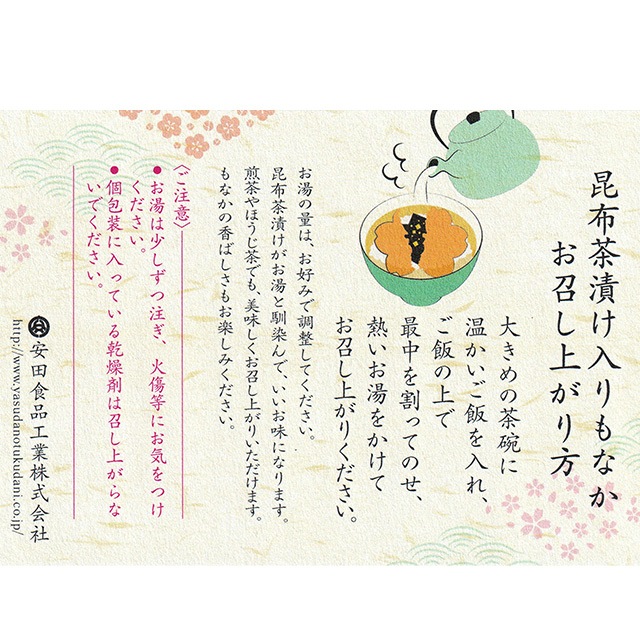 昆布茶漬け入りもなか
お召し上がり方
大きめの茶碗に
温かいご飯を入れ、
ご飯の上で
最中を割ってのせ、
熱いお湯をかけて
お召し上がりください。
お湯の量は、お好みで調整してください。
昆布茶漬けがお湯と馴染んで、いいお味になります。
煎茶やほうじ茶でも、美味しくお召し上がりいただけます。
もなかの香ばしさもお楽しみください。
〈ご注意〉
●お湯は少しずつ注ぎ、火傷等にお気をつけ
ください。
●個包装に入っている乾燥剤は召し上がらな
いでください。
安田食品工業株式会社
http://www.yasudanotukudani.co.jp/